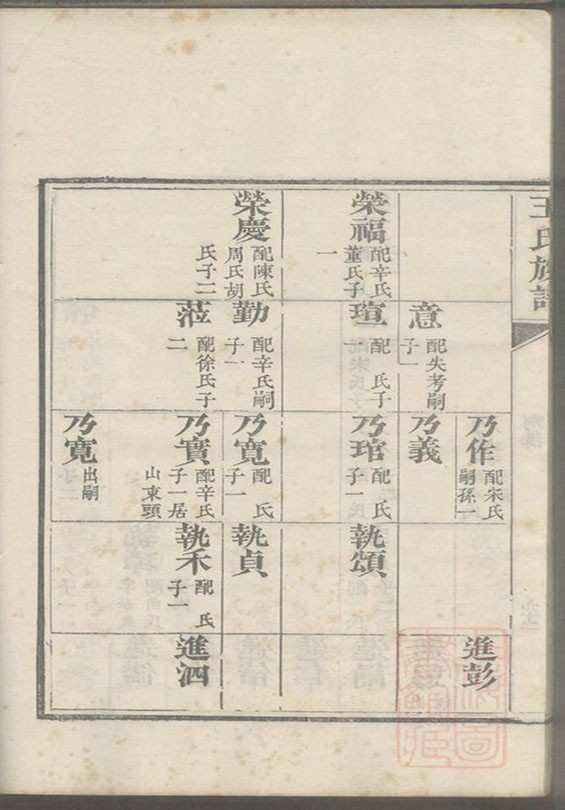 王氏族譜
榮福
配辛氏
董氏子
一
榮慶
配陳氏
周氏胡
氏子二
意
配失考嗣
子一
瑄
配　氏子
一
勤
配辛氏嗣
子一
蒞
配徐氏子
二
乃作
配宋氏
嗣孫一
乃義
乃琯
配　氏
子一
乃寬
配　氏
子一
乃實
配辛氏
子一居
山東頭
乃寬
出嗣
執頌
執貞
執禾
配　氏
子一
進彭
進泗